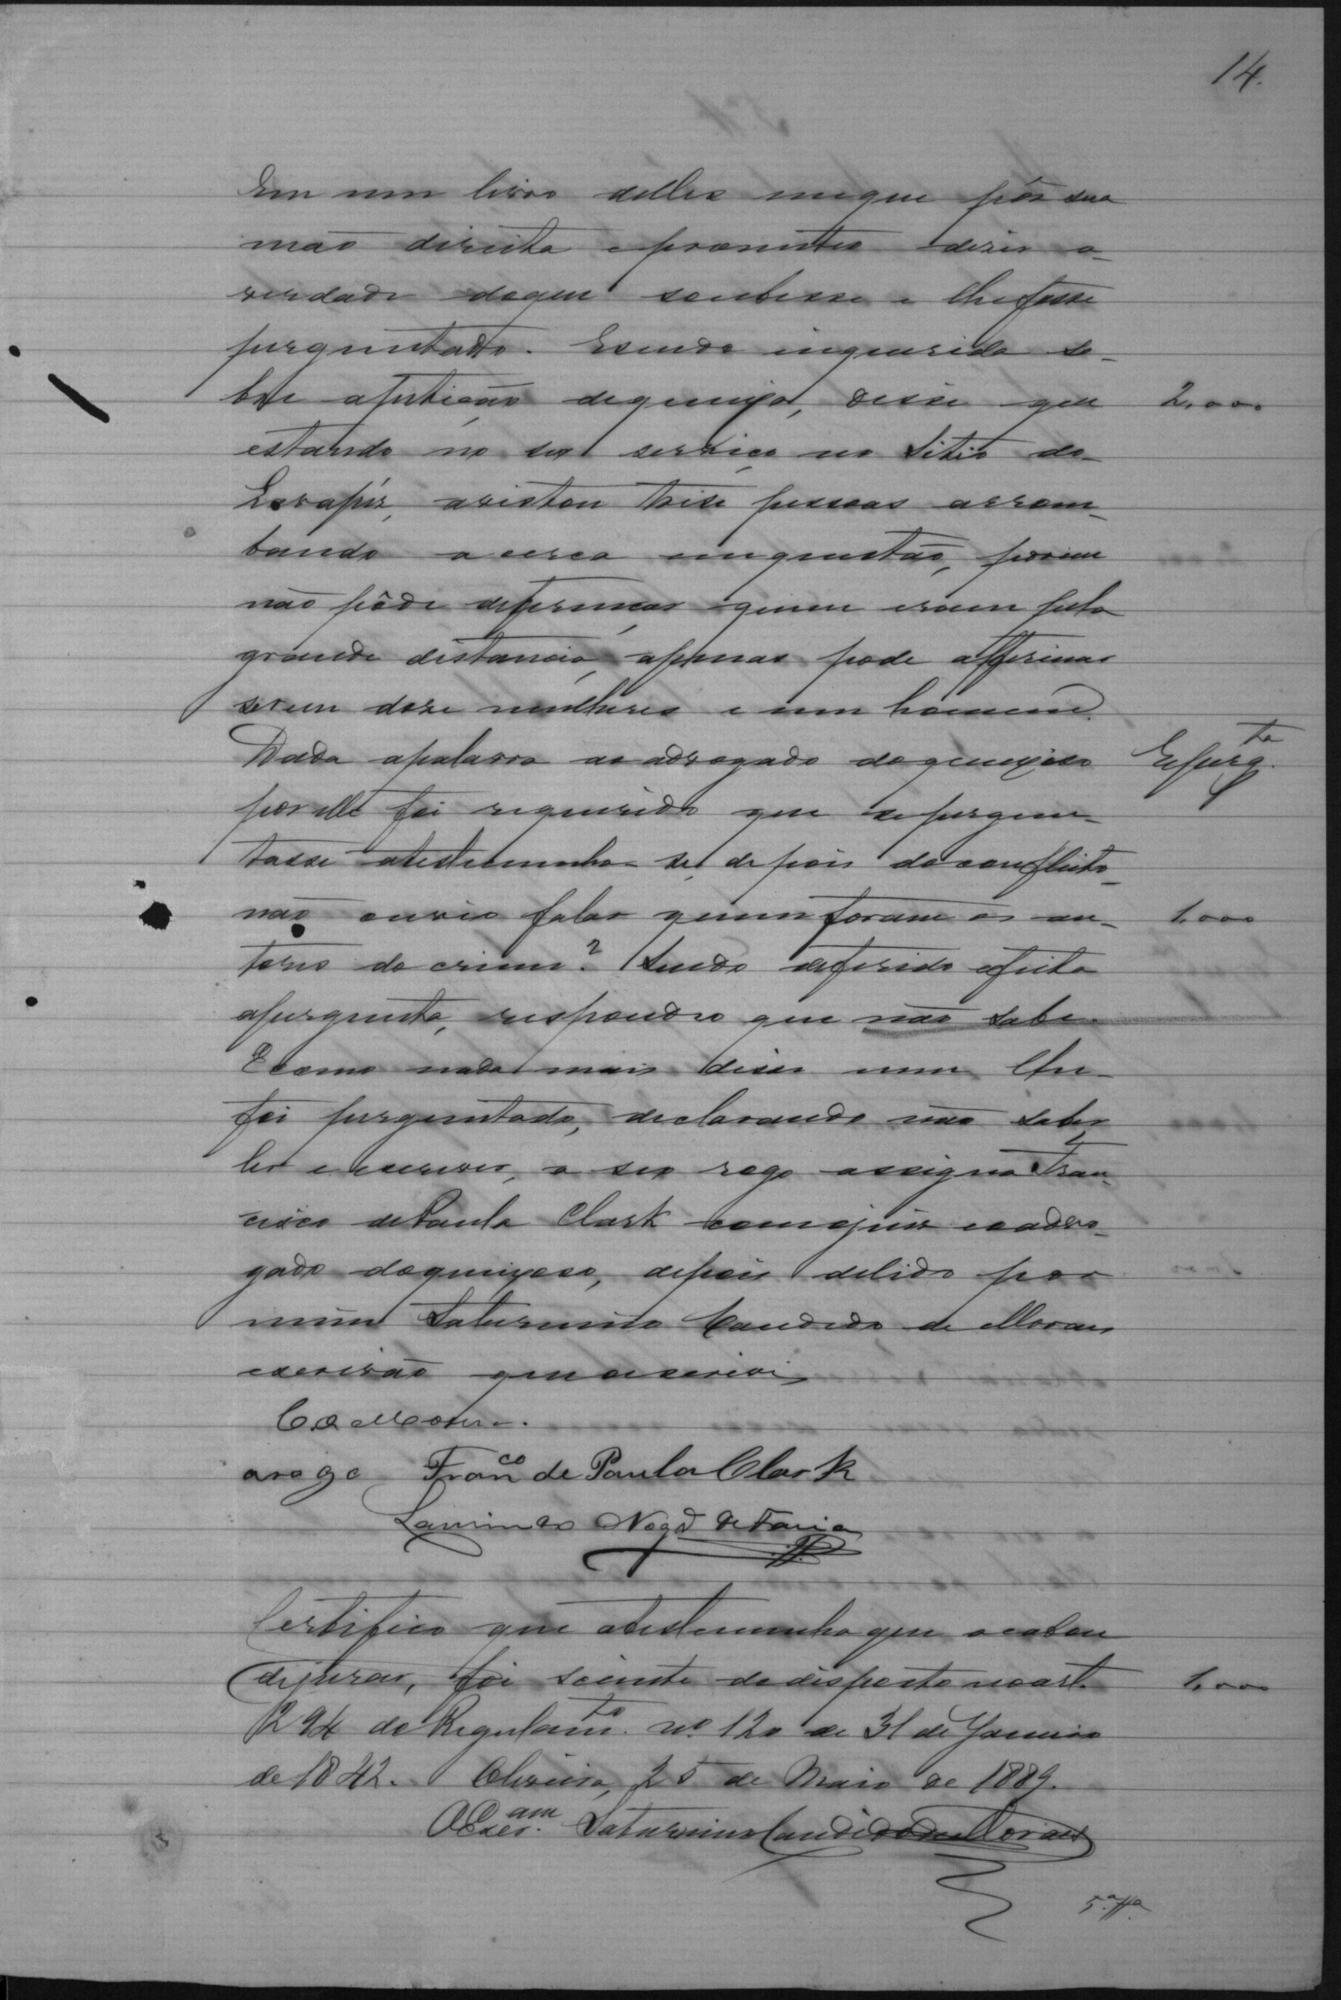 14.
Em um livro delles em que pôs sua
mão direita e prometteo diser a
verdade do que soubesse e lhe fosse
perguntado. E sendo inquerida so-
bre a petição de queixa, disse que
2.000
estando no seo serviço no Sitio do
avistou trese pessoas arrom-
bando a cerca em questão, porem
não pôde determinar quem eram pela
grande distancia, apenas pode affirmar
serem dose mulheres e um homem.
Dada a palavra ao advogado do queixoso
E perg.ta
por elle foi requerido que se pergun-
tasse a testemunha se depois do conflicto
não ouvio falar quem foram os au-
1.000
tores do crime? Sendo deferido e feita
a pergunta, respondeo que não sabe.
E como nada mais disse nem lhe
foi perguntado, declarando não saber
ler e escrever, a seo rogo assigna Fran-
cisco de Paula Clark com o juiz e o advo-
gado do queixoso, depois de lido por
mim Saturnino Candido de Moraes
escrivão que escrevi
arogo Franco de Paula Clark
Laurindo Nogd de Faria
Certifico que a testemunha que acabou
de jurar, foi sciente do disposto no art.
1.000
294 do Regulamto. nº 120 de 31 de Janeiro
de 1842. Oliveira, 25 de Maio de 1889.
O Escram. Saturnino Candido de Moraes
5ª Ta.